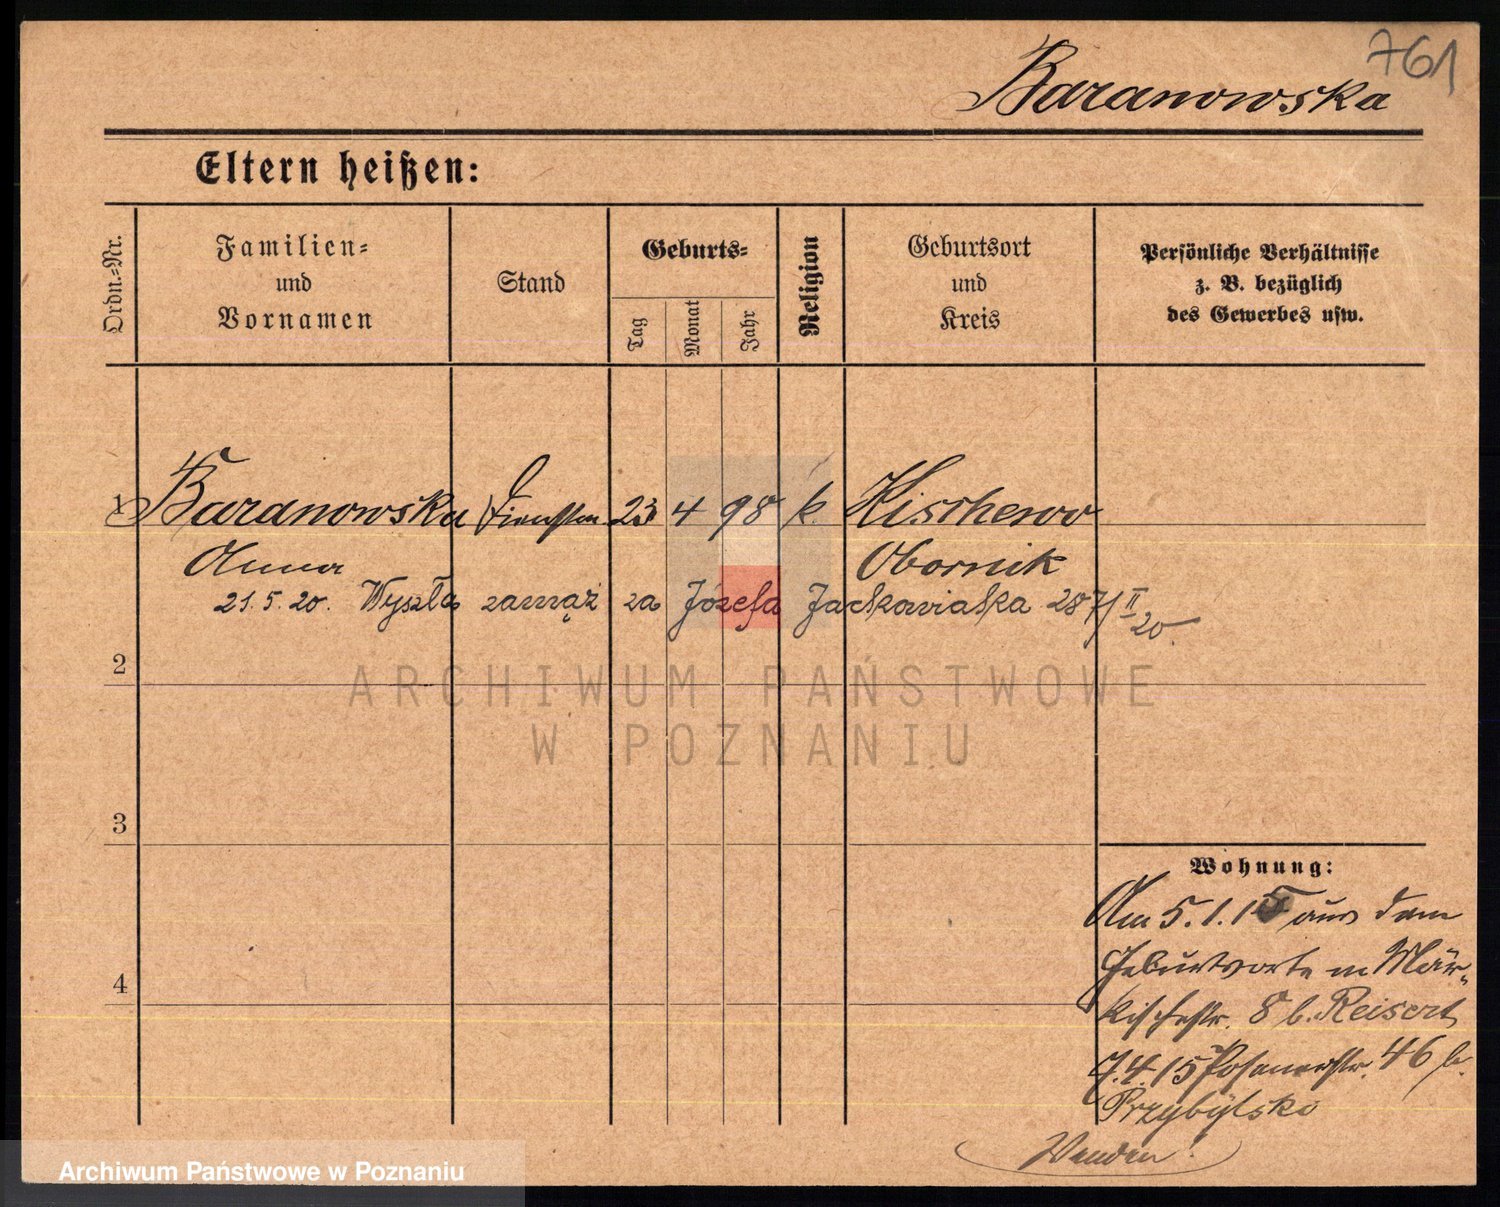 761
Baranowska
Eltern heißen:
Ordn.=Nr.
Familien=
und
Vornamen
Stand
Geburts=
Tag
Monat
Jahr
Religion
Geburtsort
und
Kreis
Persönliche Verhältnisse
z. B. bezüglich
des Gewerbes usw.
1 Baranowska 23 4 98 k. Kischewo
Anna Obornik
21.5.20. Wyszła zamąż za Józefa Jackowiaka 287/II
20
2
ARCHIWUM PAŃSTWOWE
W POZNANIU
3
4
Wohnung:
Am 5.1.15 aus dem
Geburtsorte n Mär-
kischestr. 8 b. Reisert
7.4.15 Posenerstr. 46 b.
Przybylsko
Wenden!
Archiwum Państwowe w Poznaniu